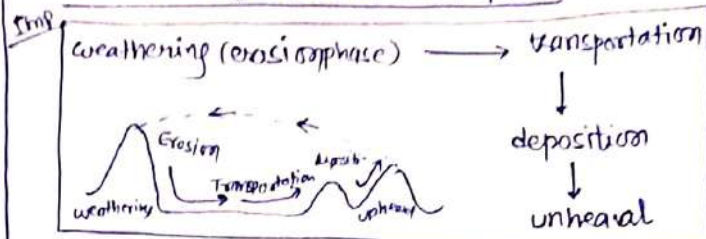 Imp
weathering (erosion phase) → transportation
↓
deposition
↓
upheaval
Erosion
Transportation
deposit.
weathering
upheaval